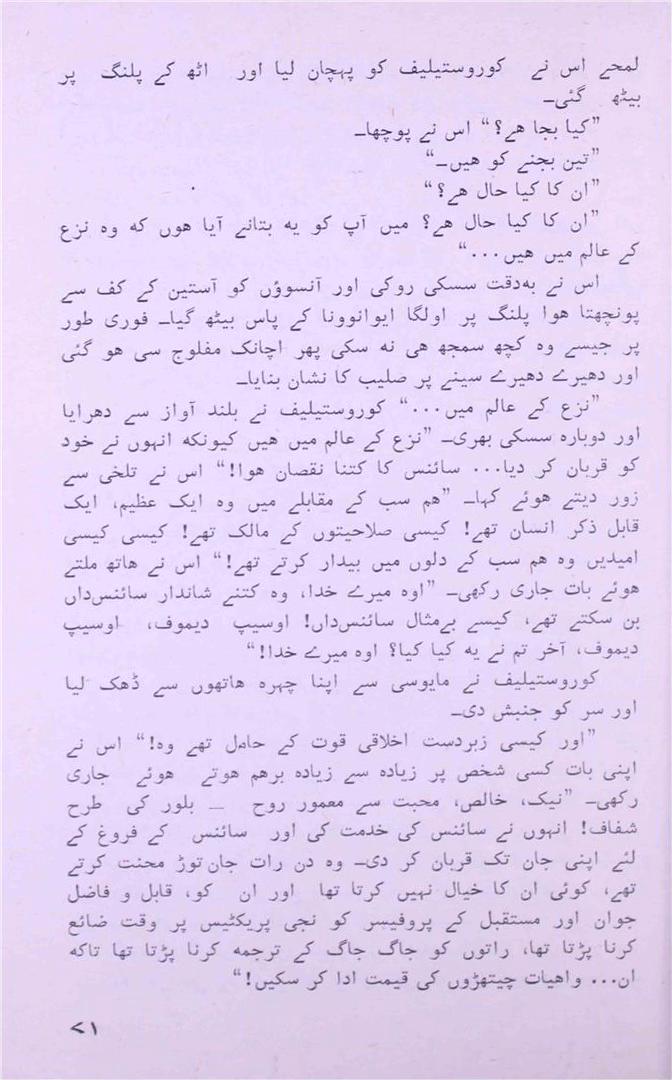 لمحے اس نے کوروستیلیف کو پہچان لیا اور اٹھ کے پلنگ پر
بیٹھ گئی۔
”کیا بجا ھے؟“ اس نے پوچھا۔
”تین بجنے کو ھیں۔“
”ان کا کیا حال ھے؟“
”ان کا کیا حال ھے؟ میں آپ کو یہ بتانے آیا ھوں کہ وہ نزع
کے عالم میں ھیں...“
اس نے بہ‌دقت سسکی روکی اور آنسوؤں کو آستین کے کف سے
پونچھتا ھوا پلنگ پر اولگا ایوانوونا کے پاس بیٹھ گیا۔ فوری طور
پر جیسے وہ کچھ سمجھ ھی نہ سکی پھر اچانک مفلوج سی ھو گئی
اور دھیرے دھیرے سینے پر صلیب کا نشان بنایا۔
”نزع کے عالم میں...“ کوروستیلیف نے بلند آواز سے دھرایا
اور دوبارہ سسکی بھری۔ ”نزع کے عالم میں ھیں کیونکہ انہوں نے خود
کو قربان کر دیا... سائنس کا کتنا نقصان ھوا!“ اس نے تلخی سے
زور دیتے ھوئے کہا۔ ”ھم سب کے مقابلے میں وہ ایک عظیم، ایک
قابل ذکر انسان تھے! کیسی صلاحیتوں کے مالک تھے! کیسی کیسی
امیدیں وہ ھم سب کے دلوں میں بیدار کرتے تھے!“ اس نے ھاتھ ملتے
ھوئے بات جاری رکھی۔ ”اوہ میرے خدا، وہ کتنے شاندار سائنس‌داں
بن سکتے تھے، کیسے بے‌مثال سائنس‌داں! اوسیپ دیموف، اوسیپ
دیموف، آخر تم نے یہ کیا کیا؟ اوہ میرے خدا!“
کوروستیلیف نے مایوسی سے اپنا چہرہ ھاتھوں سے ڈھک لیا
اور سر کو جنبش دی۔
”اور کیسی زبردست اخلاقی قوت کے حامل تھے وہ!“ اس نے
اپنی بات کسی شخص پر زیادہ سے زیادہ برھم ھوتے ھوئے جاری
رکھی۔ ”نیک، خالص، محبت سے معمور روح — بلور کی طرح
شفاف! انہوں نے سائنس کی خدمت کی اور سائنس کے فروغ کے
لئے اپنی جان تک قربان کر دی۔ وہ دن رات جان‌توڑ محنت کرتے
تھے، کوئی ان کا خیال نہیں کرتا تھا اور ان کو، قابل و فاضل
جوان اور مستقبل کے پروفیسر کو نجی پریکٹیس پر وقت ضائع
کرنا پڑتا تھا، راتوں کو جاگ جاگ کے ترجمہ کرنا پڑتا تھا تاکہ
ان... واھیات چیتھڑوں کی قیمت ادا کر سکیں!“
۷۱